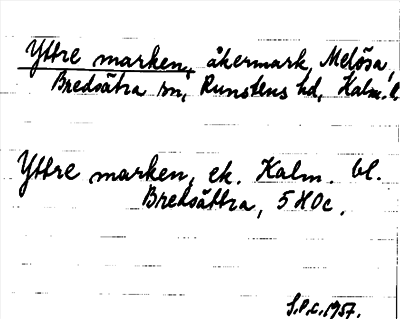 Yttre marken, åkermark, Melösa,
Bredsätra sn, Runstens hd, Kalm. l.
Yttre marken, ek. Kalm. bl.
Bredsättra, 5 H 0c.
S.P.C. 1957.